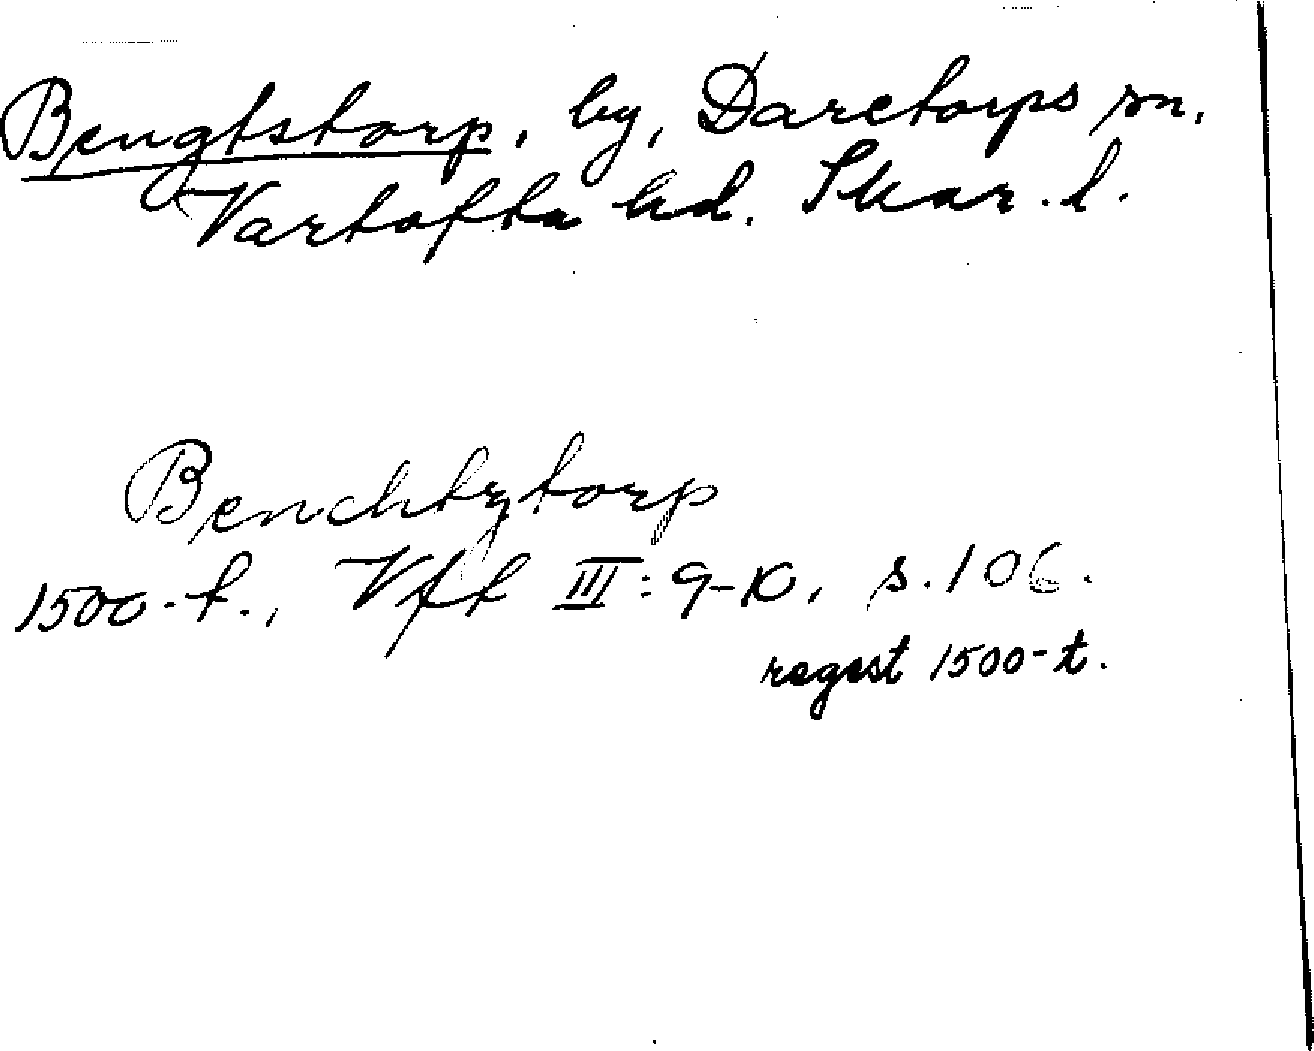 Bengtstorp, by, Daretorps sn,
Vartofta hd. Skar. l.
Benchtztorp
1500-t., Vft III: 9-10, s. 106.
regest 1500-t.